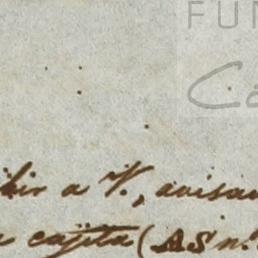 FUN
Co
bir a V., avisan
a cajita (AS n.